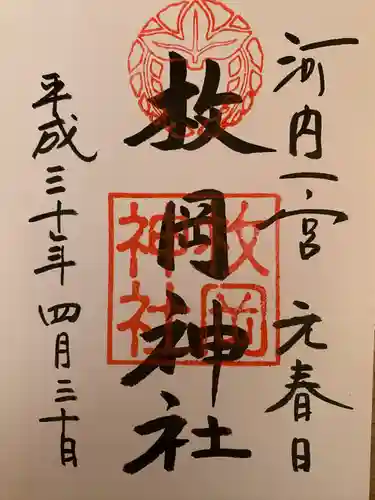 河内一宮 元春日
枚岡神社
平成三十年 四月三十日
枚岡神社